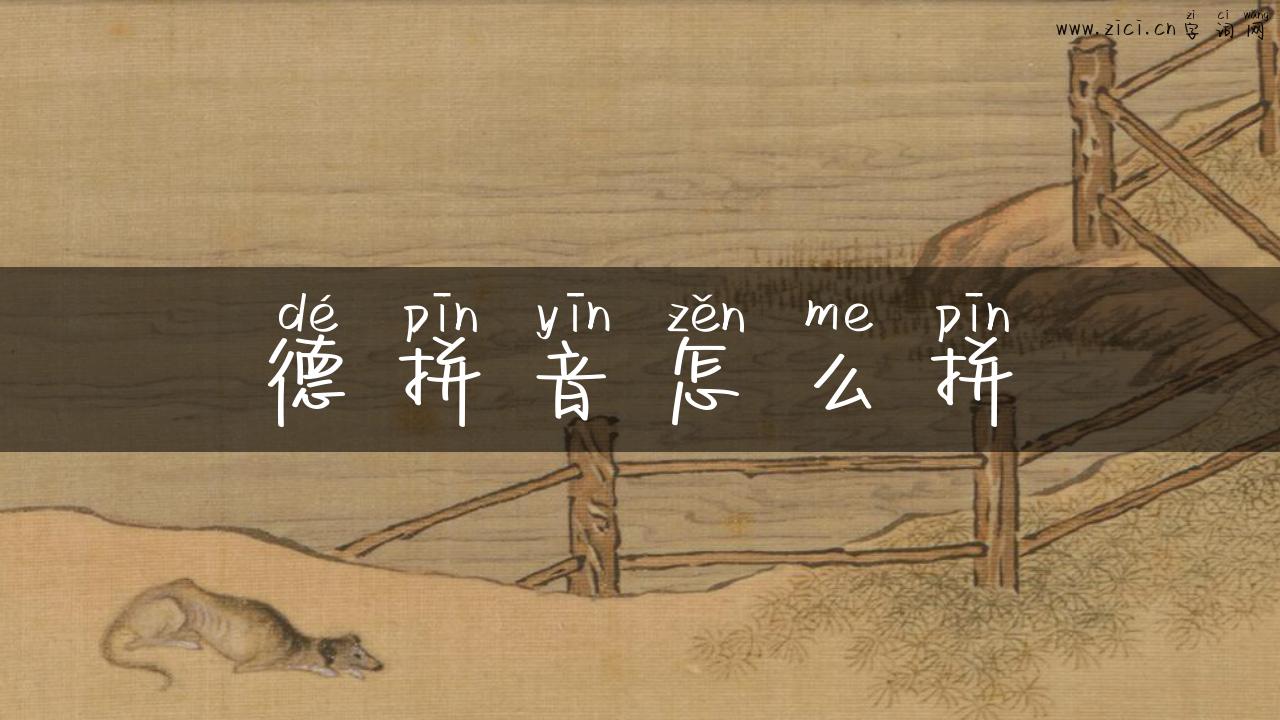 zi ci wang
www.zici.cn 字词网
dé pīn yīn zěn me pīn
德拼音怎么拼